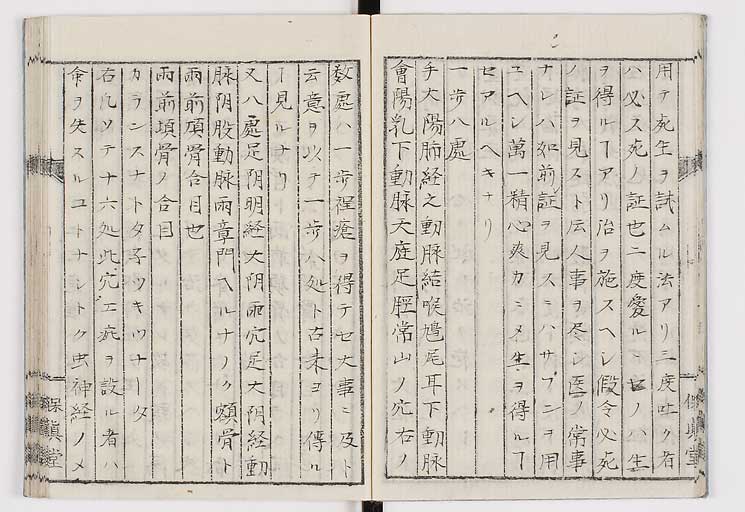 用テ死生ヲ試ムル法アリ三度吐ク者
ハ必ス死ノ証也二度愛ルヽモノハ生
ヲ得ルヿアリ治ヲ施スヘシ假令必死
ノ証ヲ見スト伝人事ヲ尽シ医ノ常事
ナレハ如前証ヲ見スミハサフニヲ用
ユヘシ萬一精心爽カミメ生ヲ得ルヿ
セアルヘキナリ
一歩八處
手大陽肺経之動脉結喉鳩尾耳下動脉
會陽乳下動脉天庭足脛常山ノ穴右ノ
数處ハ一歩裎瘡ヲ得テセ大事ニ及ト
云意ヲ以テ一歩八処ト古来ヨリ傳ル
ヿ見ルナリ
又八處足阴明経大阴両穴足大阴経動
脉阴股動脉両章門ヘルナノク額骨ト
両前頂骨合目也
両前頂骨ノ合目
カランスナトタ子ツキツナータ
右凡ソテ十六処此穴エ疵ヲ設ル者ハ
命ヲ失スルコトナシトク虫神経ノメ
保眞堂
保眞堂